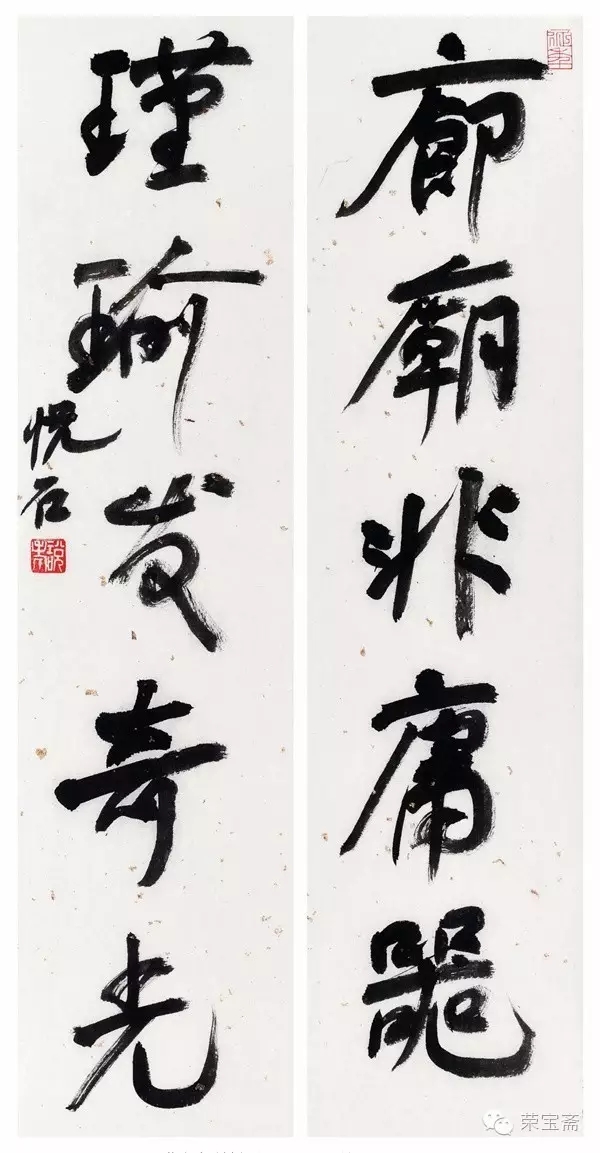 廊廟非庸器
瑾瑜发奇光
悦石
荣宝斋